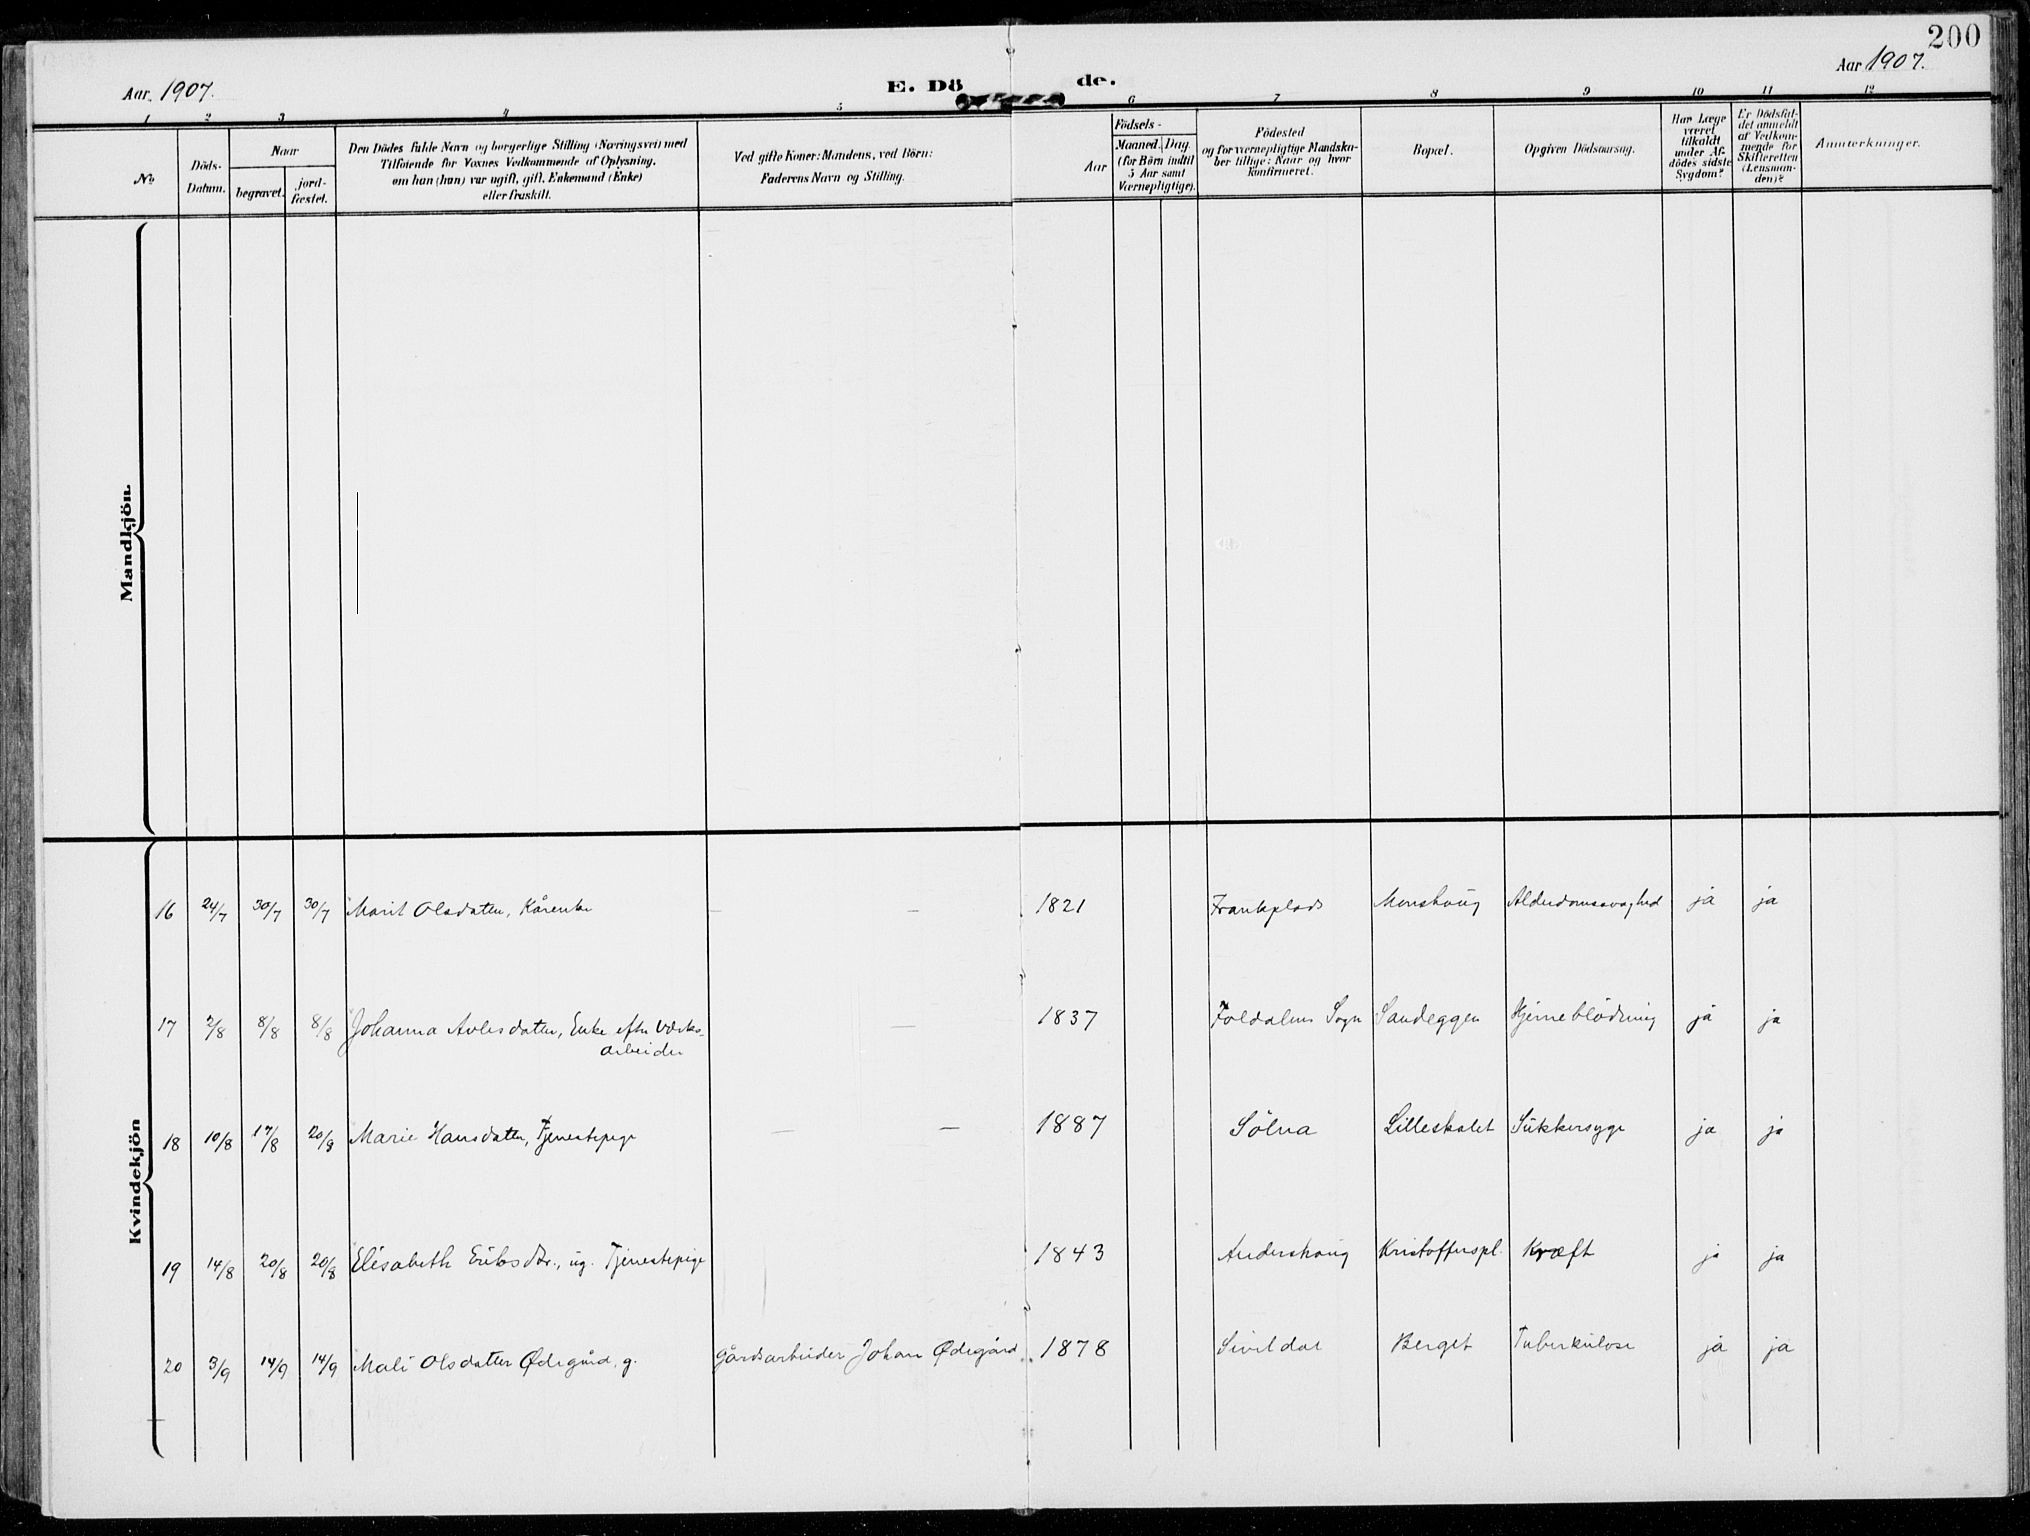 200
Aar 1907.
E. Dö de.
Aar 1907.
1 2 3 4 5 6 7 8 9 10 11 12
No
Döds-
Datum.
Naar
begravet.
jord-
fæstet.
Den Dödes fulde Navn og borgerlige Stilling (Næringsvei) med
Tilföiende for Voxnes Vedkommende af Oplysning,
om han (hun) var ugift, gift, Enkemand (Enke)
eller fraskilt.
Ved gifte Koner: Mandens, ved Börn:
Faderens Navn og Stilling.
Födsels-
Aar
Maaned. Dag.
(for Börn indtil
5 Aar samt
Værnepligtige).
Födested
og for værnepligtige Mandska-
ber tillige: Naar og hvor
konfirmeret.
Bopæl.
Opgiven Dödsaarsag.
Har Læge
været
tilkaldt
under Af-
dödes sidste
Sygdom?
Er Dödsfal-
det anmeldt
af Vedkom-
mende for
Skifteretten
(Lensman-
den)?
Anmærkninger.
Mandkjön.
Kvindekjön
16 24/7 30/7 30/7 Marit Olsdatter, Kårenke — — 1821 Frankplads Monshaug Alderdomssvaghed ja ja
17 2/8 8/8 8/8 Johanna Avlesdatter, Enke efter Værks- — 1837 Foldalens Sogn Sandeggen Hjerneblödning ja ja
arbeider
18 10/8 17/8 20/9 Marie Hansdatter, Tjenestepige — — 1887 Sölna Lilleskalet Sukkersyge ja ja
19 14/8 20/8 20/8 Elisabeth Eriksdtr., ug. Tjenestepige 1843 Andershaug Kristofferspl. Kræft ja ja
20 3/9 14/9 14/9 Mali Olsdatter Ødegård, g. Gårdsarbeider Johan Ødegård 1878 Sivildal Berget Tuberkulose ja ja